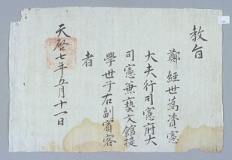 教旨
鄭經世為資憲
大夫行司憲府大
司憲兼藝文館提
學世子右副賓客
者
天啓七年五月十一日